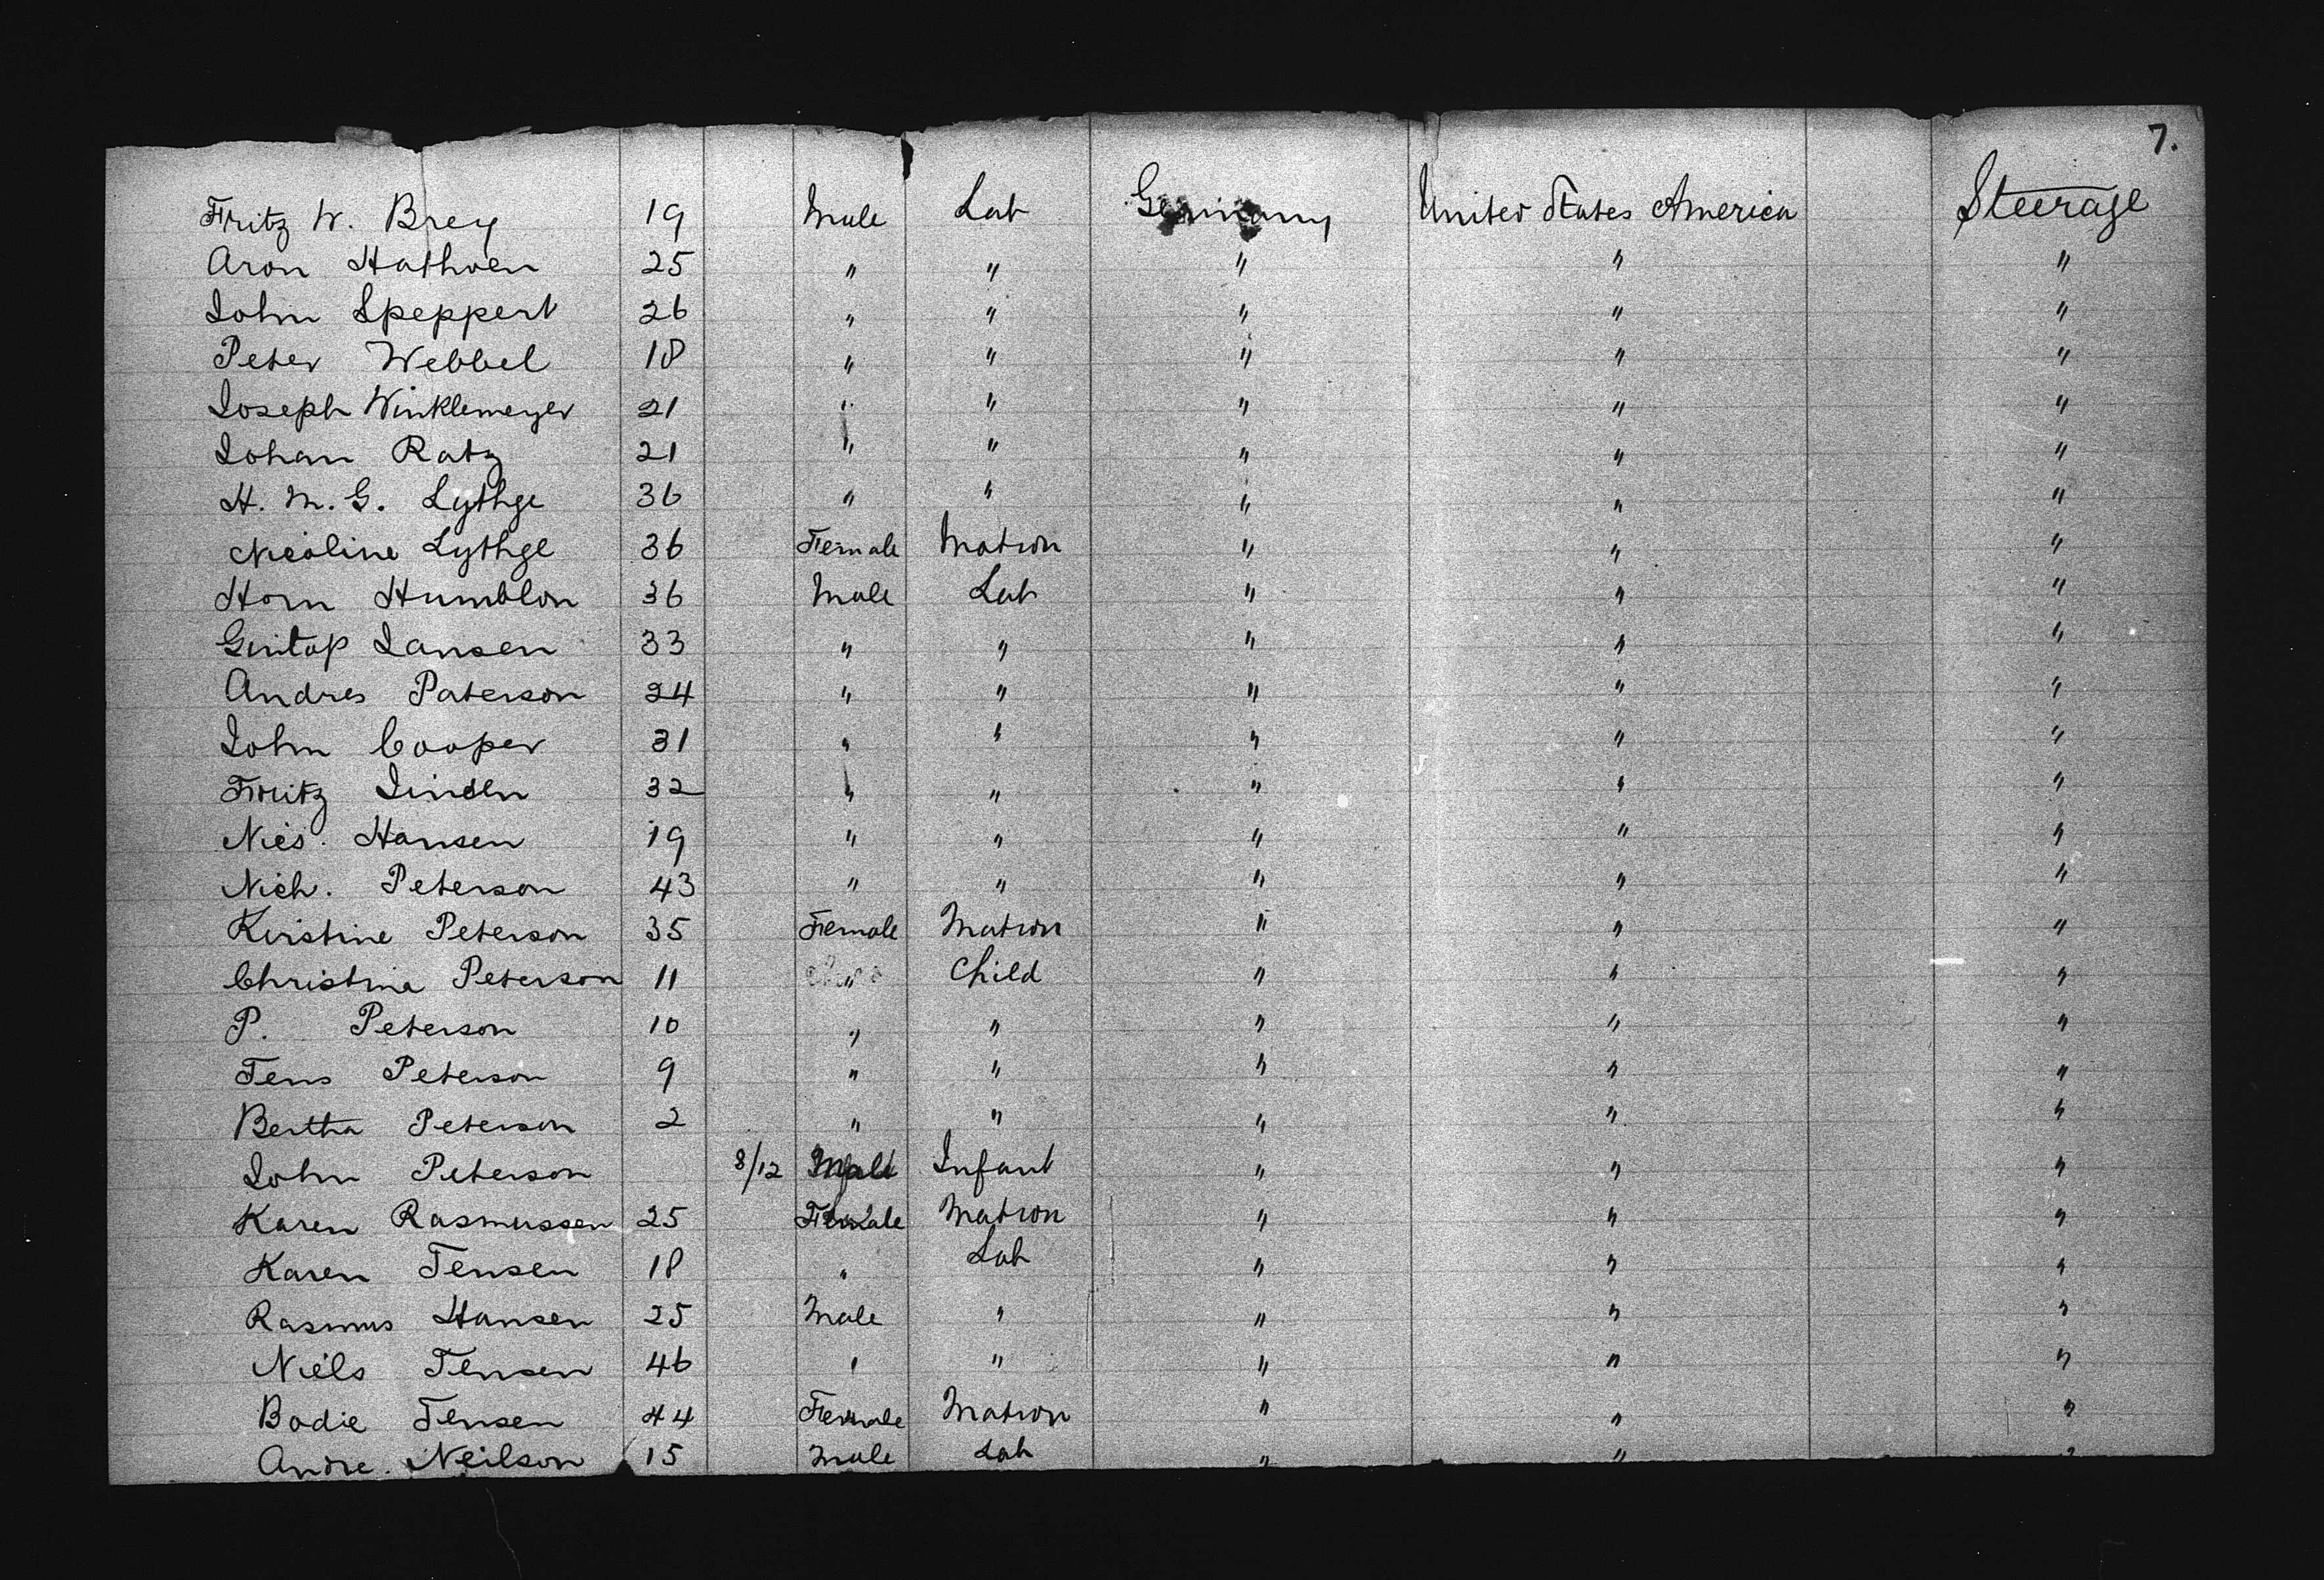 7.
Fritz W. Brey 19 Male Lab Germany United States America Steerage
Aron Hathven 25 " " " " "
John Speppert 26 " " " " "
Peter Webbel 18 " " " " "
Joseph Winklemeyer 21 " " " " "
Johan Ratz 21 " " " " "
H. M. G. Lythge 36 " " " " "
Nicoline Lythge 36 Female Matron " " "
Horn Humblon 36 Male Lab " " "
Jansen 33 " " " " "
Andres Paterson 24 " " " " "
John Cooper 31 " " " " "
Fritz Linden 32 " " " " "
Nies. Hansen 19 " " " " "
Nich. Peterson 43 " " " " "
Kirstine Peterson 35 Female Matron " " "
Christina Peterson 11 " Child " " "
P. Peterson 10 " " " " "
Jens Peterson 9 " " " " "
Bertha Peterson 2 " " " " "
John Peterson 8/12 Male Infant " " "
Karen Rasmussen 25 Female Matron " " "
Karen Jensen 18 " Lab " " "
Rasmus Hansen 25 Male " " " "
Niels Jensen 46 " " " " "
Bodie Jensen 44 Female Matron " " "
Andre. Neilson 15 Male Lab " " "